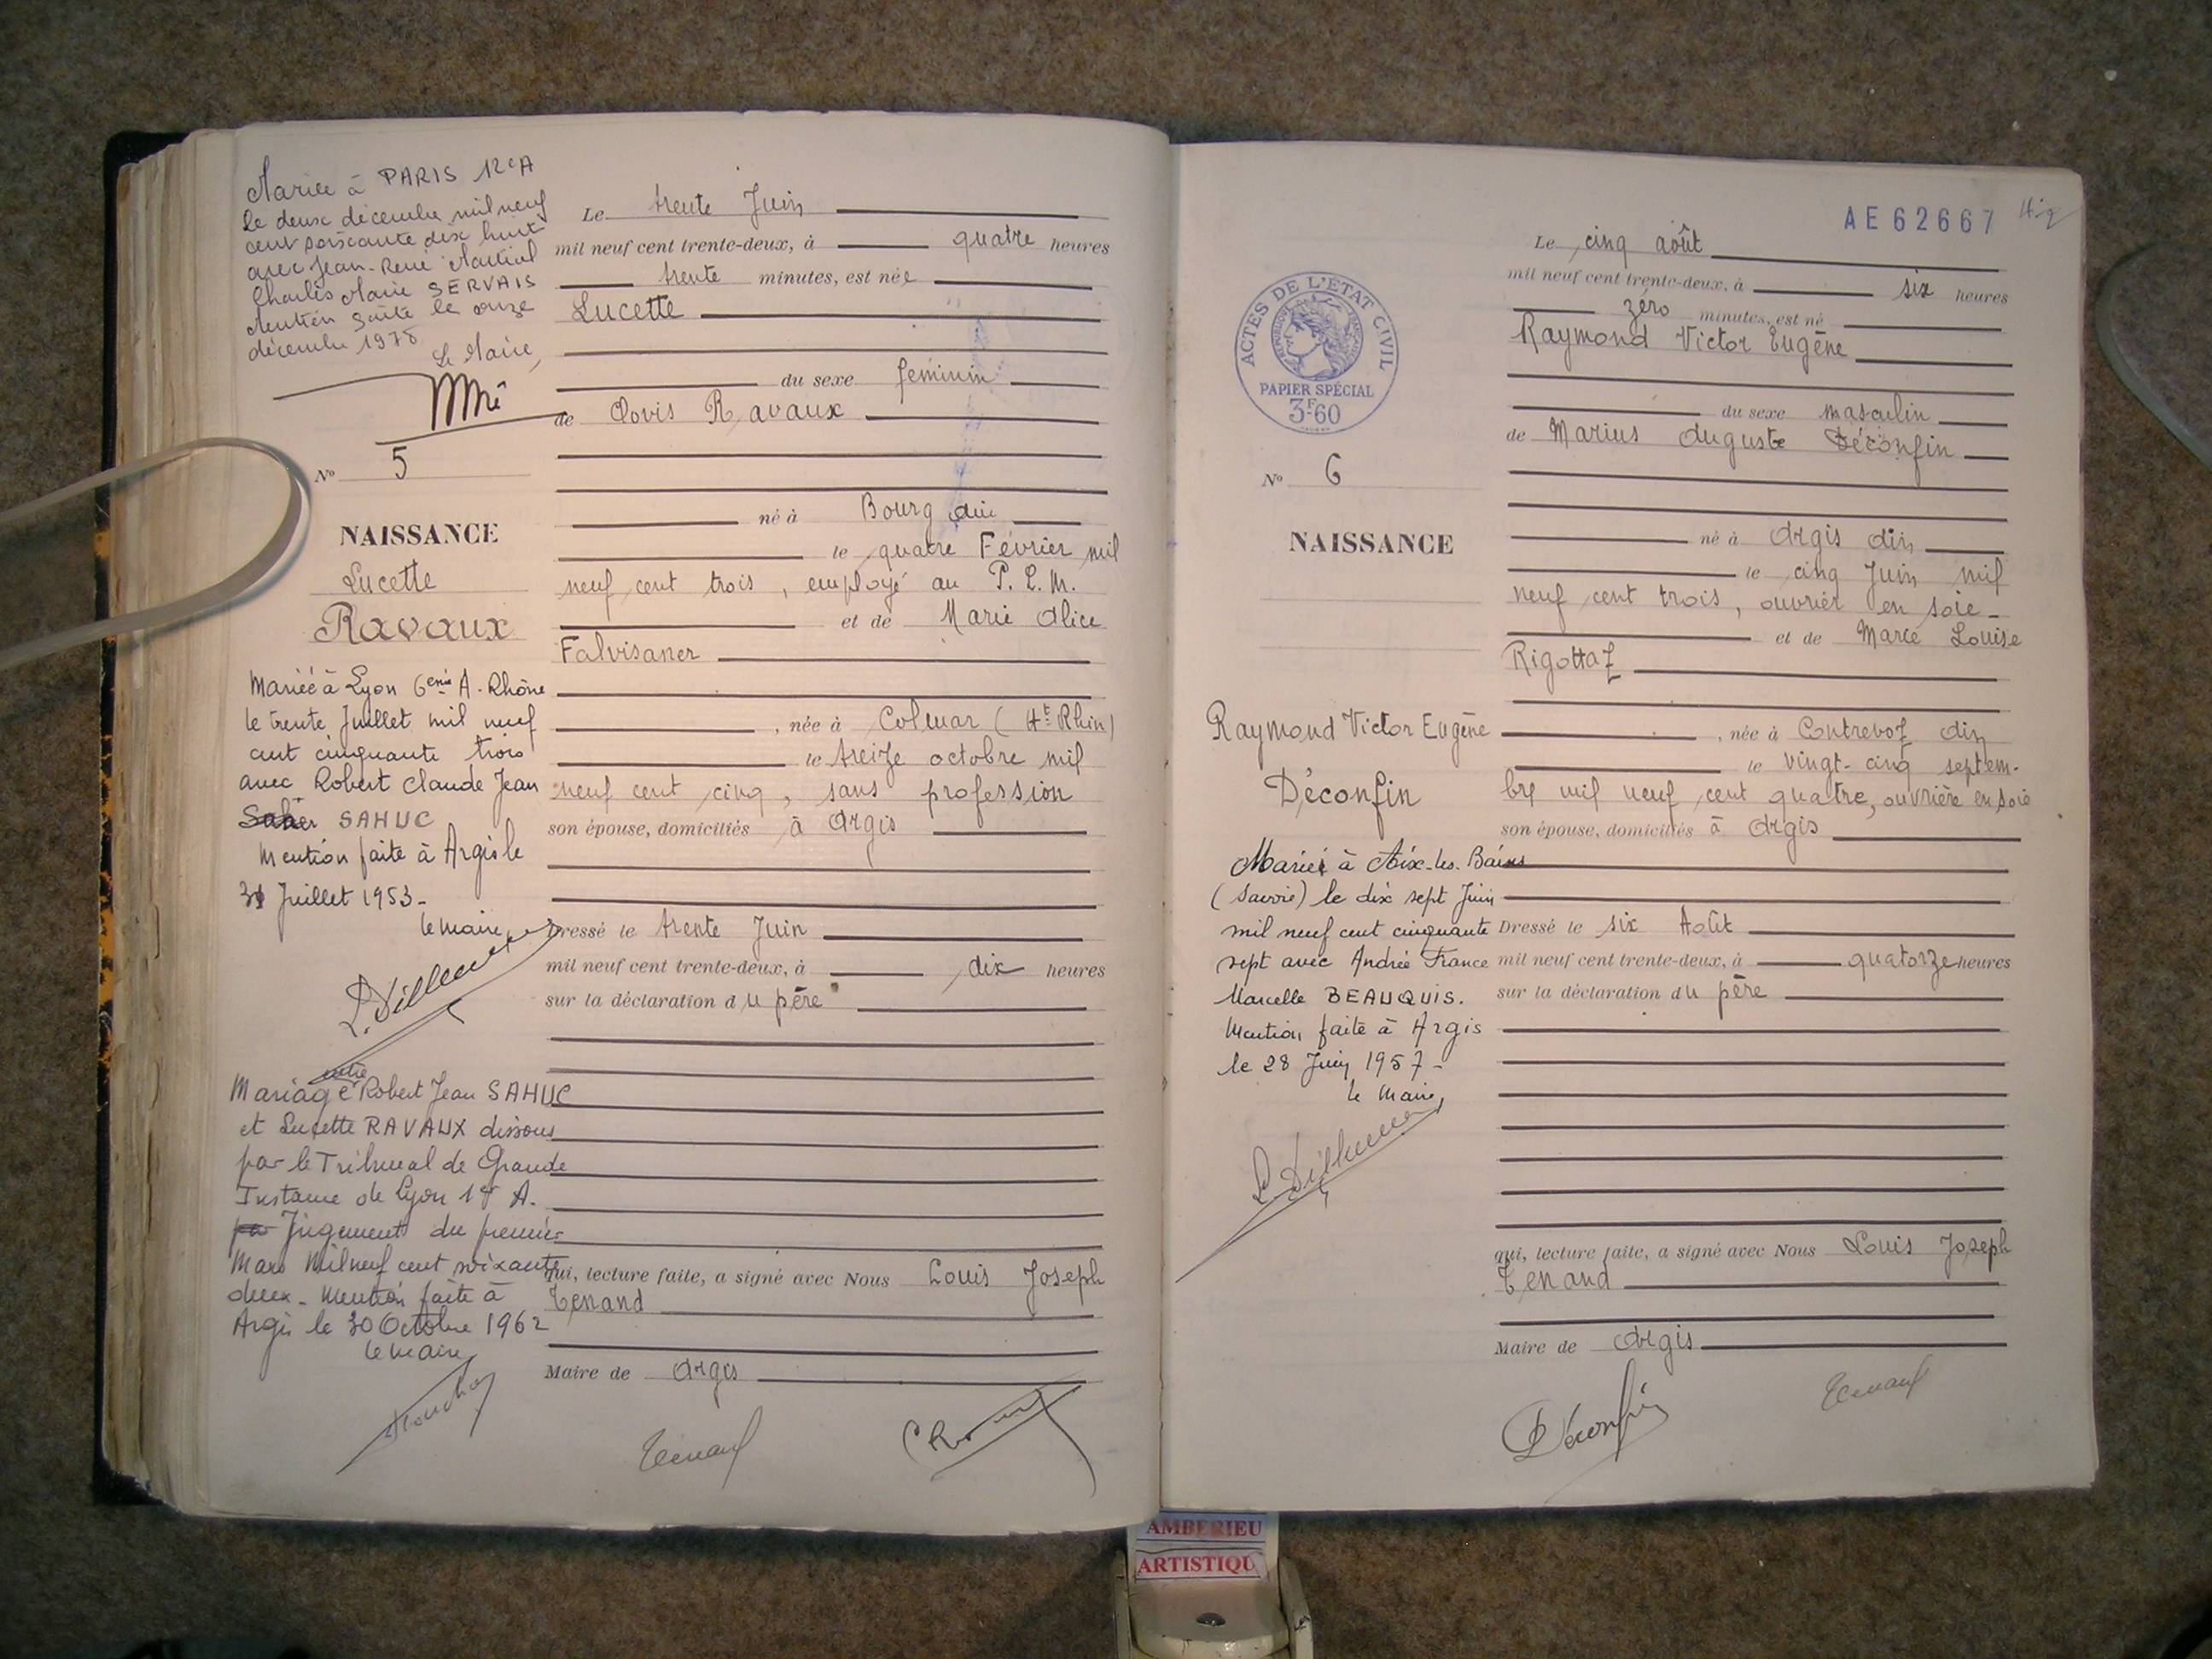 Mariée à PARIS 12e A
le deux décembre mil neuf
cent soixante dix huit
avec Jean-René Martial
Charles Marie SERVAIS
Mention faite le onze
décembre 1978
Le Maire,
N° 5
NAISSANCE
Lucette
Ravaux
Mariée à Lyon 6eme A. Rhône
le trente Juillet mil neuf
cent cinquante trois
avec Robert Claude Jean
SAHUC
Mention faite à Argis le
31 Juillet 1953-
le maire,
Mariage entre Robert Jean SAHUC
et Lucette RAVAUX dissous
par le Tribunal de Grande
Instance de Lyon 1er A.
Jugement du premier
Mars Mil neuf cent soixante
deux - Mention faite à
Argis le 30 Octobre 1962
le maire
Le trente Juin
mil neuf cent trente-deux, à quatre heures
trente minutes, est née
Lucette
du sexe feminin
de Clovis Ravaux
né à Bourg Ain
le quatre Février mil
neuf cent trois, employé au P.L.M.
et de Marie Alice
Falvisaner
, née à Colmar (Ht Rhin)
le treize octobre mil
neuf cent cinq, sans profession
son épouse, domiciliés à Argis
Dressé le trente Juin
mil neuf cent trente-deux, à dix heures
sur la déclaration du père
qui, lecture faite, a signé avec Nous Louis Joseph
Tenand
Maire de Argis
Tenand
AE 62667
ACTES DE L'ÉTAT CIVIL
RÉPUBLIQUE FRANÇAISE
PAPIER SPÉCIAL
3F60
N° 6
NAISSANCE
Raymond Victor Eugène
Déconfin
Marié à Aix-les-Bains
(Savoie) le dix sept Juin
mil neuf cent cinquante
sept avec Andrée France
Marcelle BEAUQUIS.
Mention faite à Argis
le 28 Juin 1957-
le Maire,
Le cinq août
mil neuf cent trente-deux, à six heures
zéro minutes, est né
Raymond Victor Eugène
du sexe masculin
de Marius Auguste Déconfin
né à Argis Ain
le cinq Juin mil
neuf cent trois, ouvrier en soie-
et de Marie Louise
Rigottaz
, née à Contrevoz Ain
le vingt-cinq septem-
bre mil neuf cent quatre, ouvrière en soie
son épouse, domiciliés à Argis
Dressé le six Août
mil neuf cent trente-deux, à quatorze heures
sur la déclaration du père
qui, lecture faite, a signé avec Nous Louis Joseph
Tenand
Maire de Argis
Déconfin
Tenand
AMBERIEU
ARTISTIQU